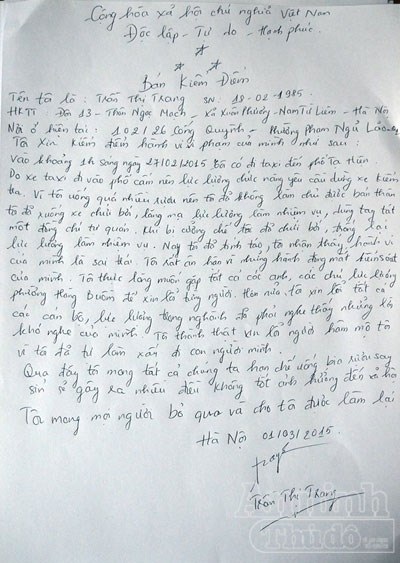 Cộng hòa xã hội chủ nghĩa Việt Nam
Độc lập - Tự do - Hạnh phúc.
Bản Kiểm Điểm
Tên tôi là : Trần Thị Trang SN: 18-02-1985
HKTT : Đội 13 - Thôn Ngọc Mạch - Xã Xuân Phương - Nam Từ Liêm - Hà Nội
Nơi ở hiện tại : 102/26 Cống Quỳnh - Phường Phạm Ngũ Lão
Tôi xin kiểm điểm hành vi vi phạm của mình như sau :
Vào khoảng 1h sáng ngày 27/02/2015 tôi có đi taxi đến phố Tạ Hiện.
Do xe taxi đi vào phố cấm nên lực lượng chức năng yêu cầu dừng xe kiểm
tra. Vì tôi uống quá nhiều rượu nên tôi đã không làm chủ được bản thân
tôi đã xuống xe chửi bới, lăng mạ lực lượng làm nhiệm vụ, dùng tay tát
một đồng chí tự quản. Khi bị cưỡng chế tôi đã chửi bới, chống lại
lực lượng làm nhiệm vụ. Nay tôi đã tỉnh táo, tôi nhận thấy hành vi
của mình là sai trái. Tôi rất ân hận vì những hành động mất kiểm soát
của mình. Tôi thực lòng muốn gặp tất cả các anh, các chú lực lượng
phường Hàng Buồm để xin lỗi từng người. Hơn nữa, tôi xin lỗi tất cả
các cán bộ, lực lượng trong nghành đã phải nghe thấy những lời
khó nghe của mình. Tôi thành thật xin lỗi người hâm mộ tôi
vì tôi đã tự làm xấu đi con người mình.
Qua đây tôi mong tất cả chúng ta hạn chế uống bia rượu say
sỉn sẽ gây ra nhiều điều không tốt ảnh hưởng đến xã hội
Tôi mong mọi người bỏ qua và cho tôi được làm lại
Hà Nội 01/03/2015.
Trang
Trần Thị Trang
An ninh
Thủ đô